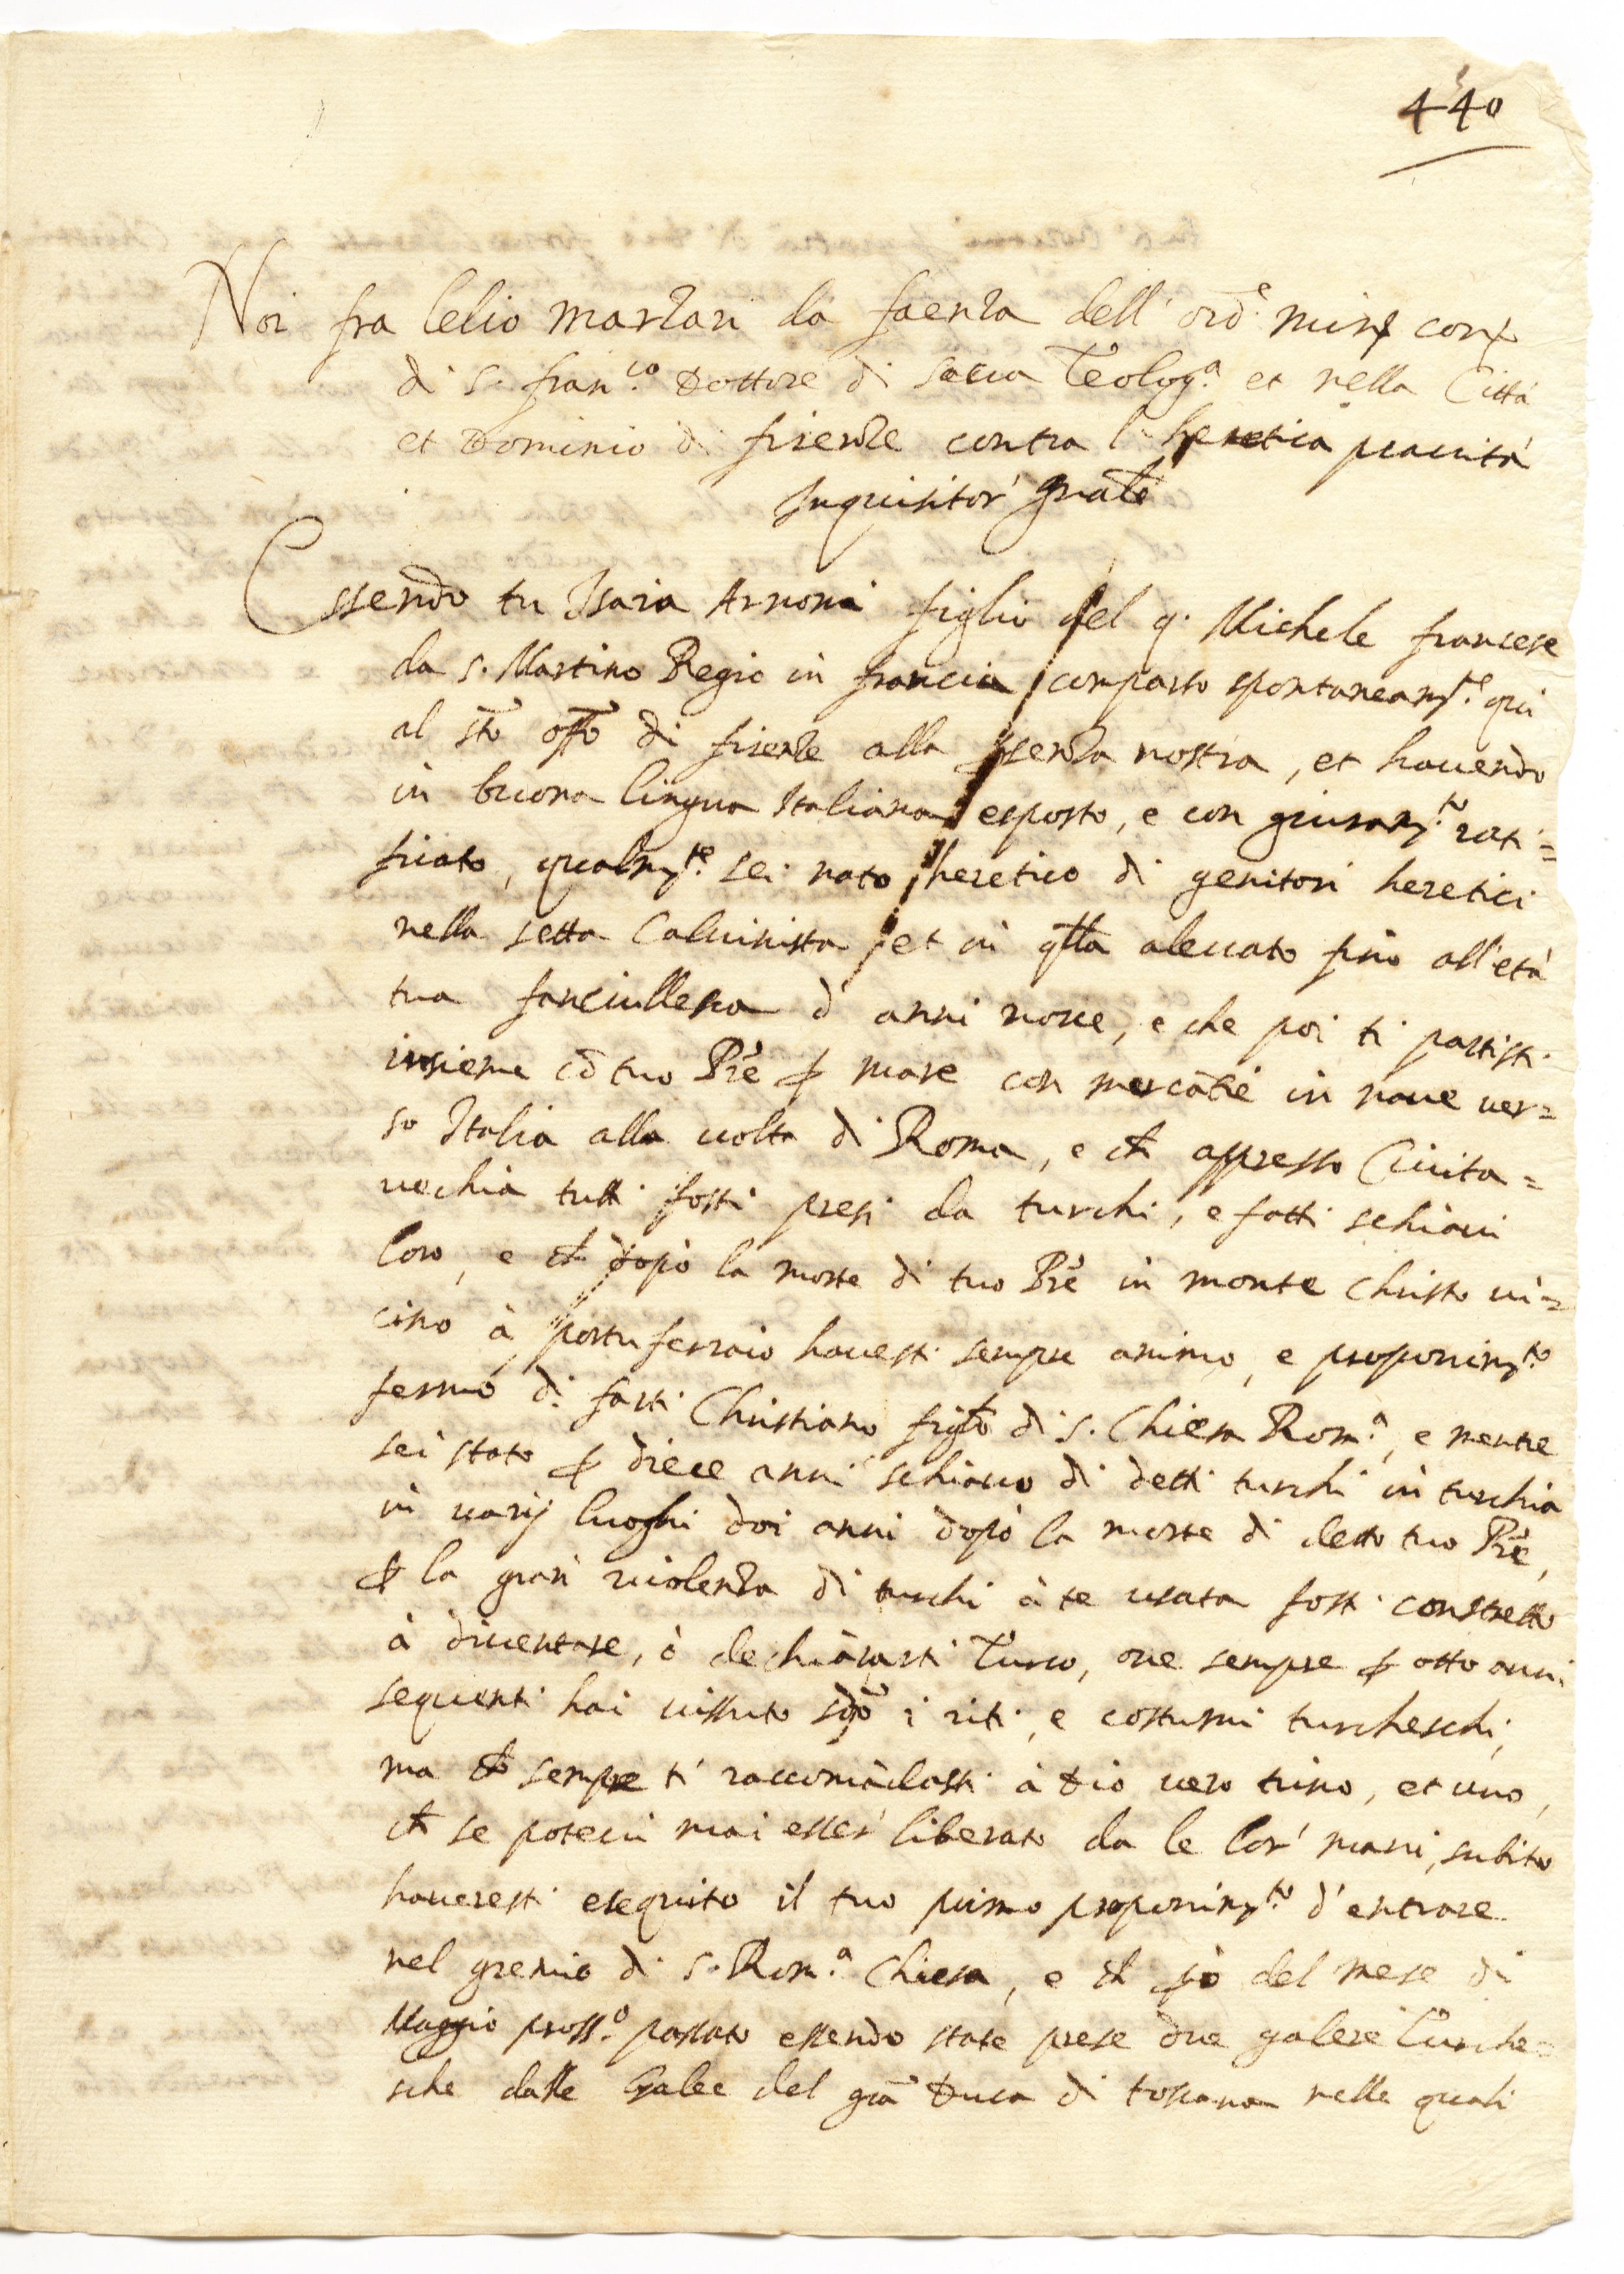 440
Noi fra Lelio Marzari da Faenza dell' ord.e min. con.
di S. Fran.co Dottore di Sacra Teolog.a et nella Città
et Dominio di Firenze contra l'heretica pravità
Inquisitor' Gnale
Essendo tu Isaia Arnoni figlio del q. Michele francese
da S. Martino Regio in francia comparso spontaneam.te qui
al sto offo di firenze alla psenza nostra, et havendo
in buona lingua Italiana esposto, e con giuram.to rati=
ficato, qualm.te sei nato heretico di genitori heretici
nella setta Calvinista et in qlla alevato fino all'età
tua fanciullesca d anni nove, e che poi ti partisti
insieme cō tuo Pre p mare con mercatie in nave ver=
so Italia alla volta di Roma, e ch appresso Civita=
vechia tutti fosti presi da turchi, e fatti schiavi
loro, e ch dopò la morte di tuo Pre in monte Christo vi=
cino à portu ferraio havesti sempre animo, e proponim.to
fermo di farti Christiano figlo di S. Chiesa Rom.a, e mentre
sei stato p diece anni schiavo di detti turchi in turchia
in varij luoghi doi anni dopò la morte di detto tuo Pre,
p la gran violenza di turchi à te usata fosti constretto
à diventare, ò dechiararti Turco, ove sempre p otto anni
sequenti hai vissuto sdo i riti, e costumi turcheschi,
ma ch sempre ti raccomādasti à Dio vero trino, et uno,
ch se potevi mai esser' liberato da le lor' mani, subito
haveresti esequito il tuo primo proponim.to d'entrare
nel gremio di S. Rom.a Chiesa, e ch pò del mese di
Maggio pross.o passato essendo state prese due galere Turche=
sche dalle Galee del grā Duca di toscana nelle quali